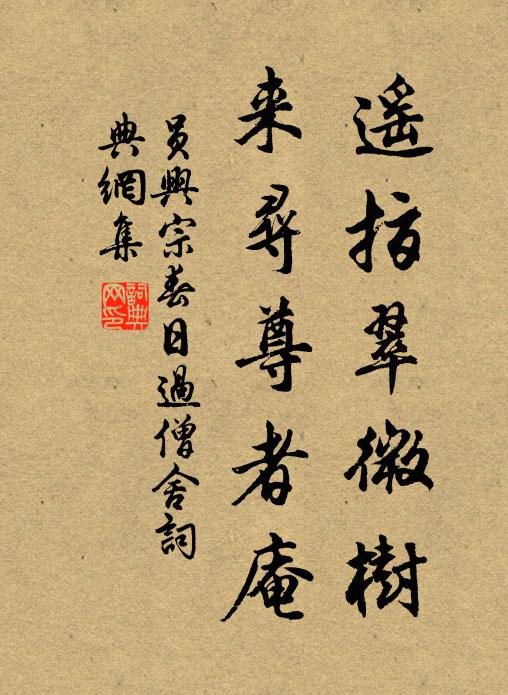 遥指翠微樹
来尋尊者庵
員興宗春日過僧舍詞
典網集
詞典網印